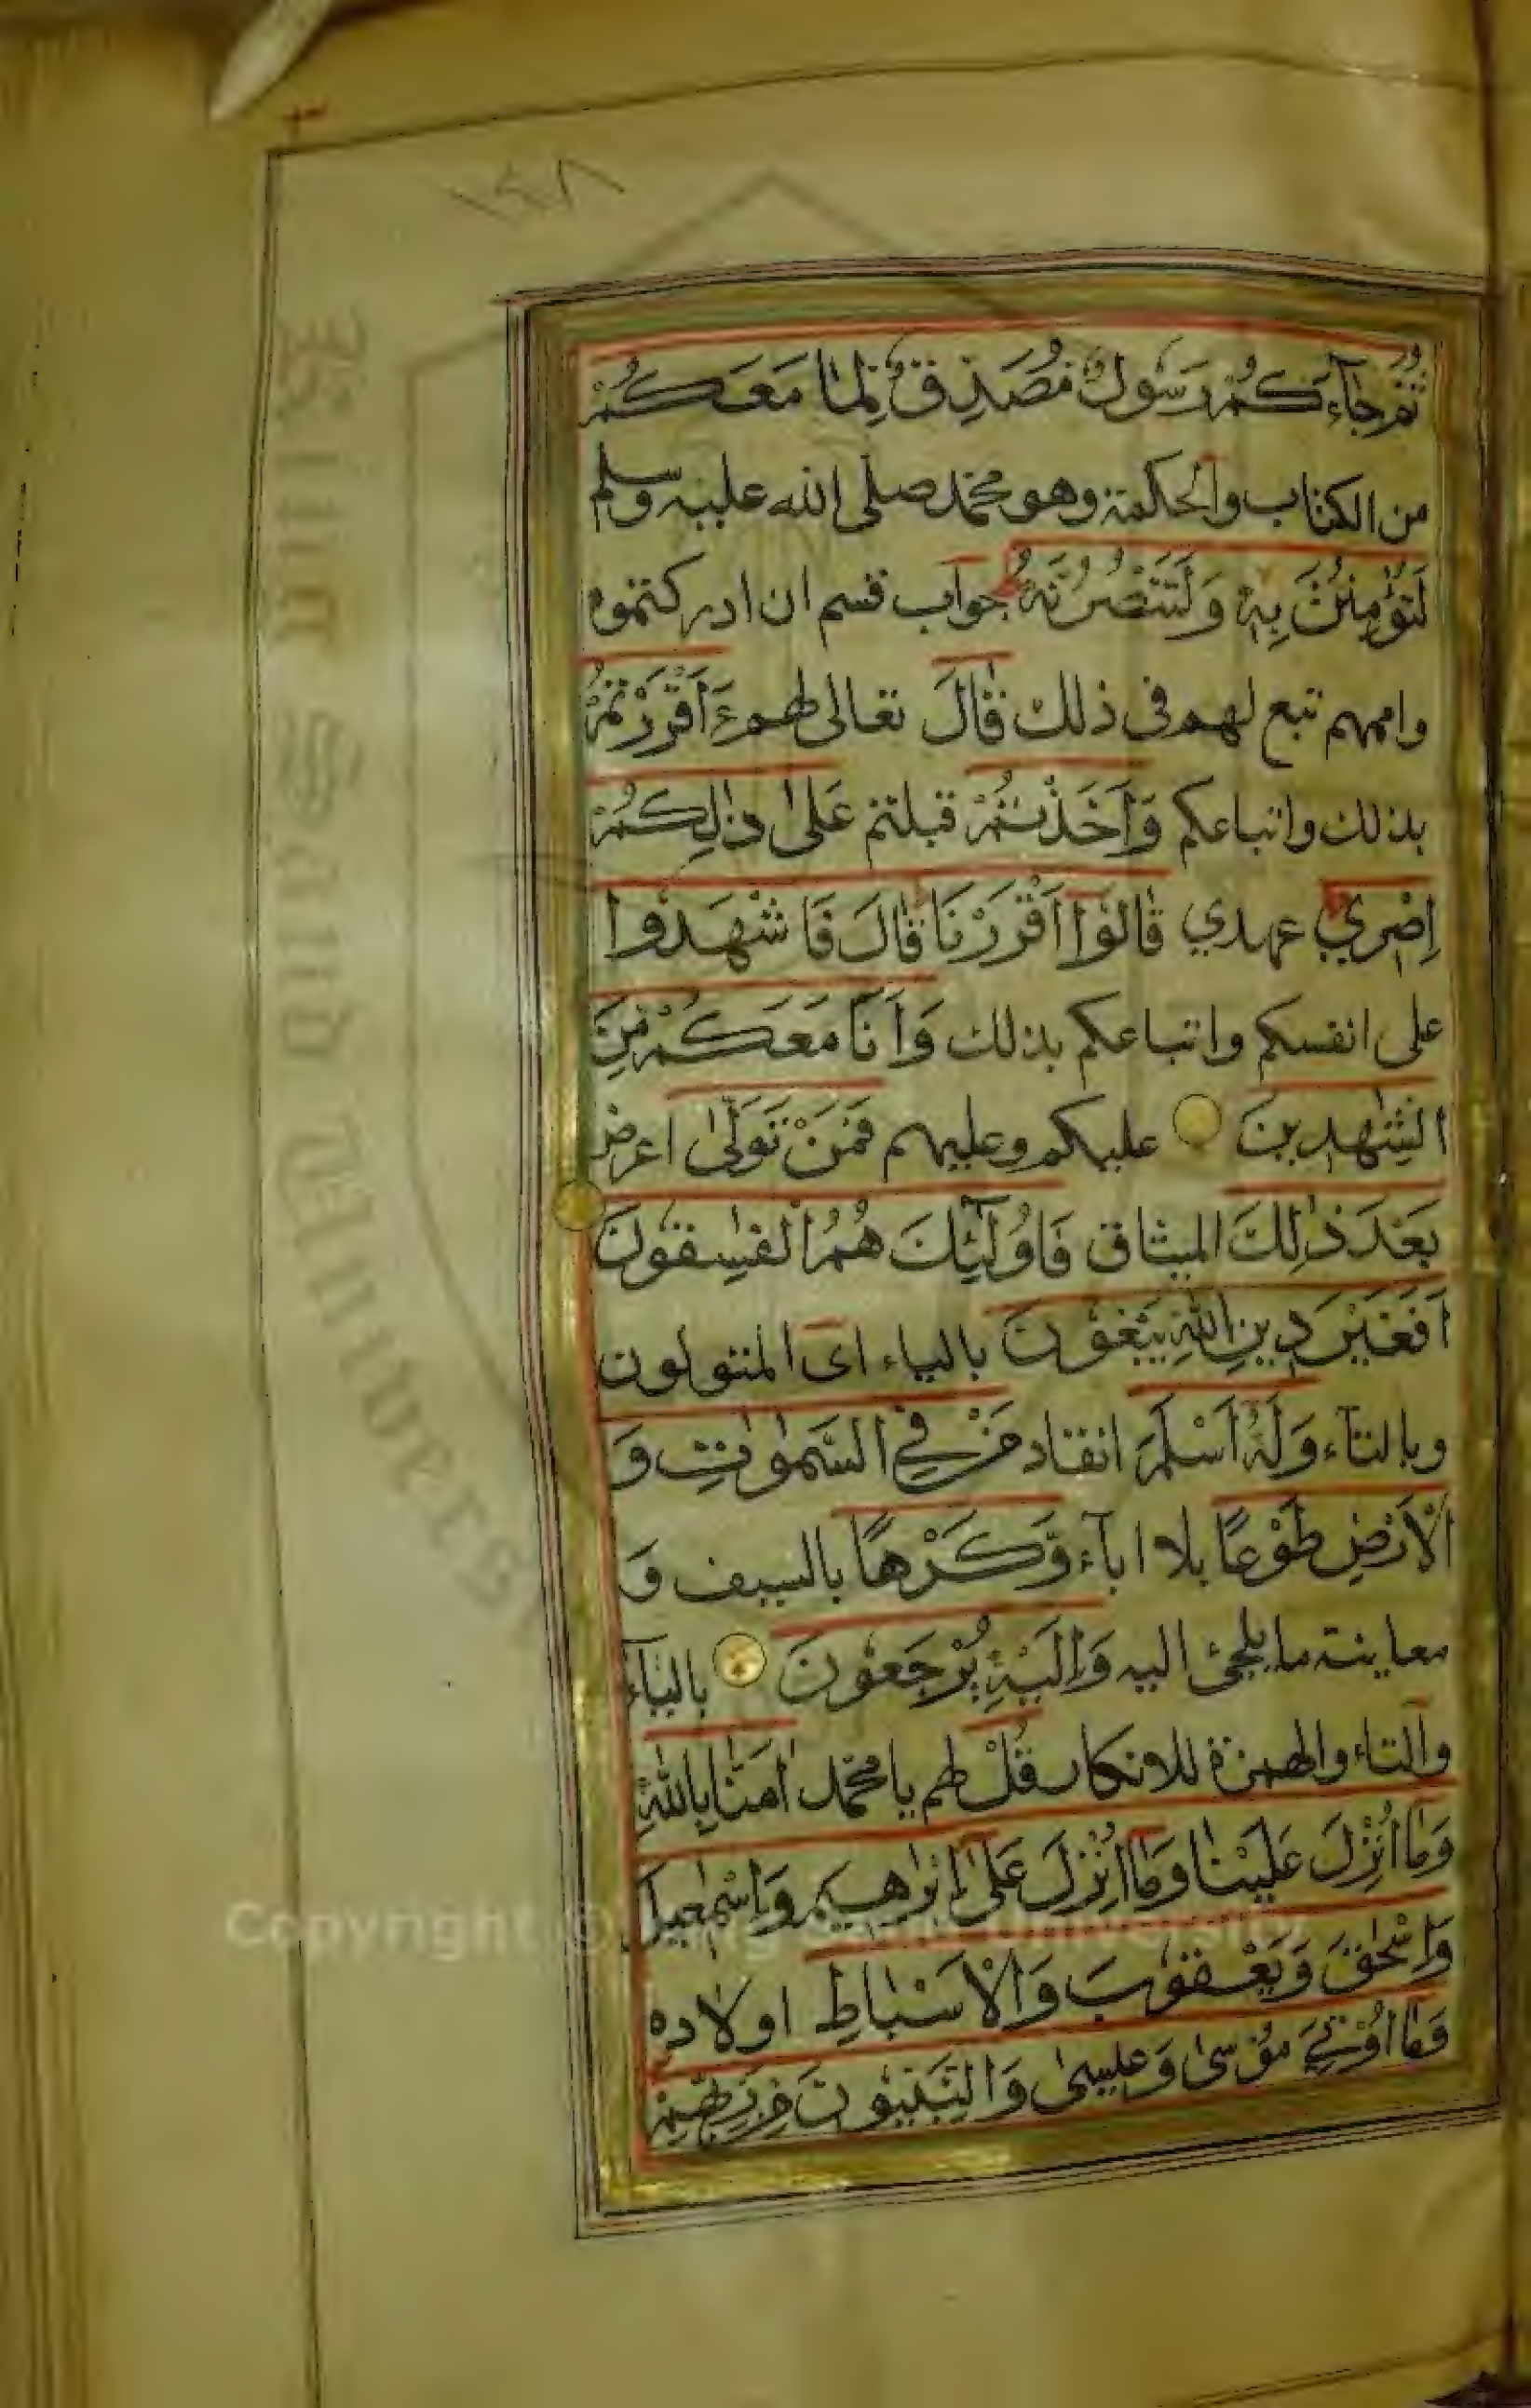 ١٤٨
ثُمَّ جَآءَكُمْ رَسُولٌ مُصَدِّقٌ لِمَا مَعَكُمْ
من الكتاب والحكمة وهو محمد صلى الله عليه وسلم
لَتُؤْمِنُنَّ بِهٖ وَلَتَنْصُرُنَّهُ جواب قسم ان ادركتموه
واممهم تبع لهم في ذلك قَالَ تعالى لهم ءَاَقْرَرْتُمْ
بذلك واتباعكم وَاَخَذْتُمْ قبلتم عَلٰى ذٰلِكُمْ
اِصْرِي عهدي قَالُوٓا اَقْرَرْنَا قَالَ فَاشْهَدُوا
على انفسكم واتباعكم بذلك وَاَنَا مَعَكُمْ مِنَ
الشّٰهِدِينَ عليكم وعليهم فَمَنْ تَوَلّٰى اعرض
بَعْدَ ذٰلِكَ الميثاق فَاُولٰٓئِكَ هُمُ الْفٰسِقُونَ
اَفَغَيْرَ دِينِ اللّٰهِ يَبْغُونَ بالياء اى المتولون
وبالتآء وَلَهُ اَسْلَمَ انقاد مَنْ فِي السَّمٰوٰتِ وَ
الْاَرْضِ طَوْعًا بلا ابآء وَّكَرْهًا بالسيف و
معاينة ما يلجئ اليه وَاِلَيْهِ يُرْجَعُونَ بالياء
والتاء والهمزة للانكار قُلْ لهم يا محمد اٰمَنَّا بِاللّٰهِ
وَمَآ اُنْزِلَ عَلَيْنَا وَمَآ اُنْزِلَ عَلٰٓى اِبْرٰهِيمَ وَاِسْمٰعِيلَ
وَاِسْحٰقَ وَيَعْقُوبَ وَالْاَسْبَاطِ اولاده
وَمَآ اُوْتِيَ مُوْسٰى وَعِيسٰى وَالنَّبِيُّونَ مِنْ رَبِّهِمْ
King Saud University
Copyright © King Saud University